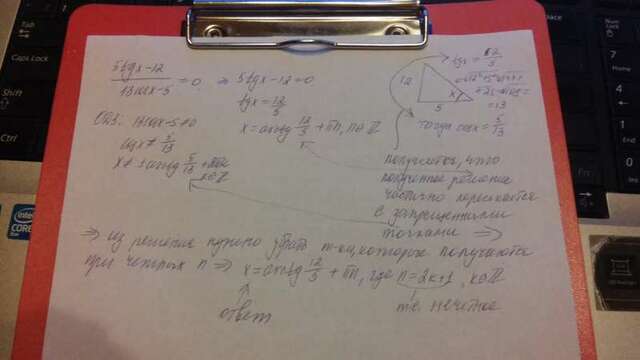 5tgx-12
13cosx-5 =0 ⇒ 5tgx-12=0
tgx=12/5
x=arctg 12/5 + πn, n∈Z
ОДЗ: 13cosx-5≠0
cosx≠5/13
x≠±arccos 5/13 +2πk
k∈Z
tgx=12/5
12
5
x
=13
тогда cosx=5/13
получается, что
полученное решение
частично пересекается
с запрещенными
точками ⇒
⇒ из решения нужно убрать т-ки, которые получаются
при четных n ⇒ x=arctg 12/5 + πn, где n=2k+1, k∈Z
ответ
т.е. нечетное
Caps Lock
Shift
Ctrl
intel
CORE